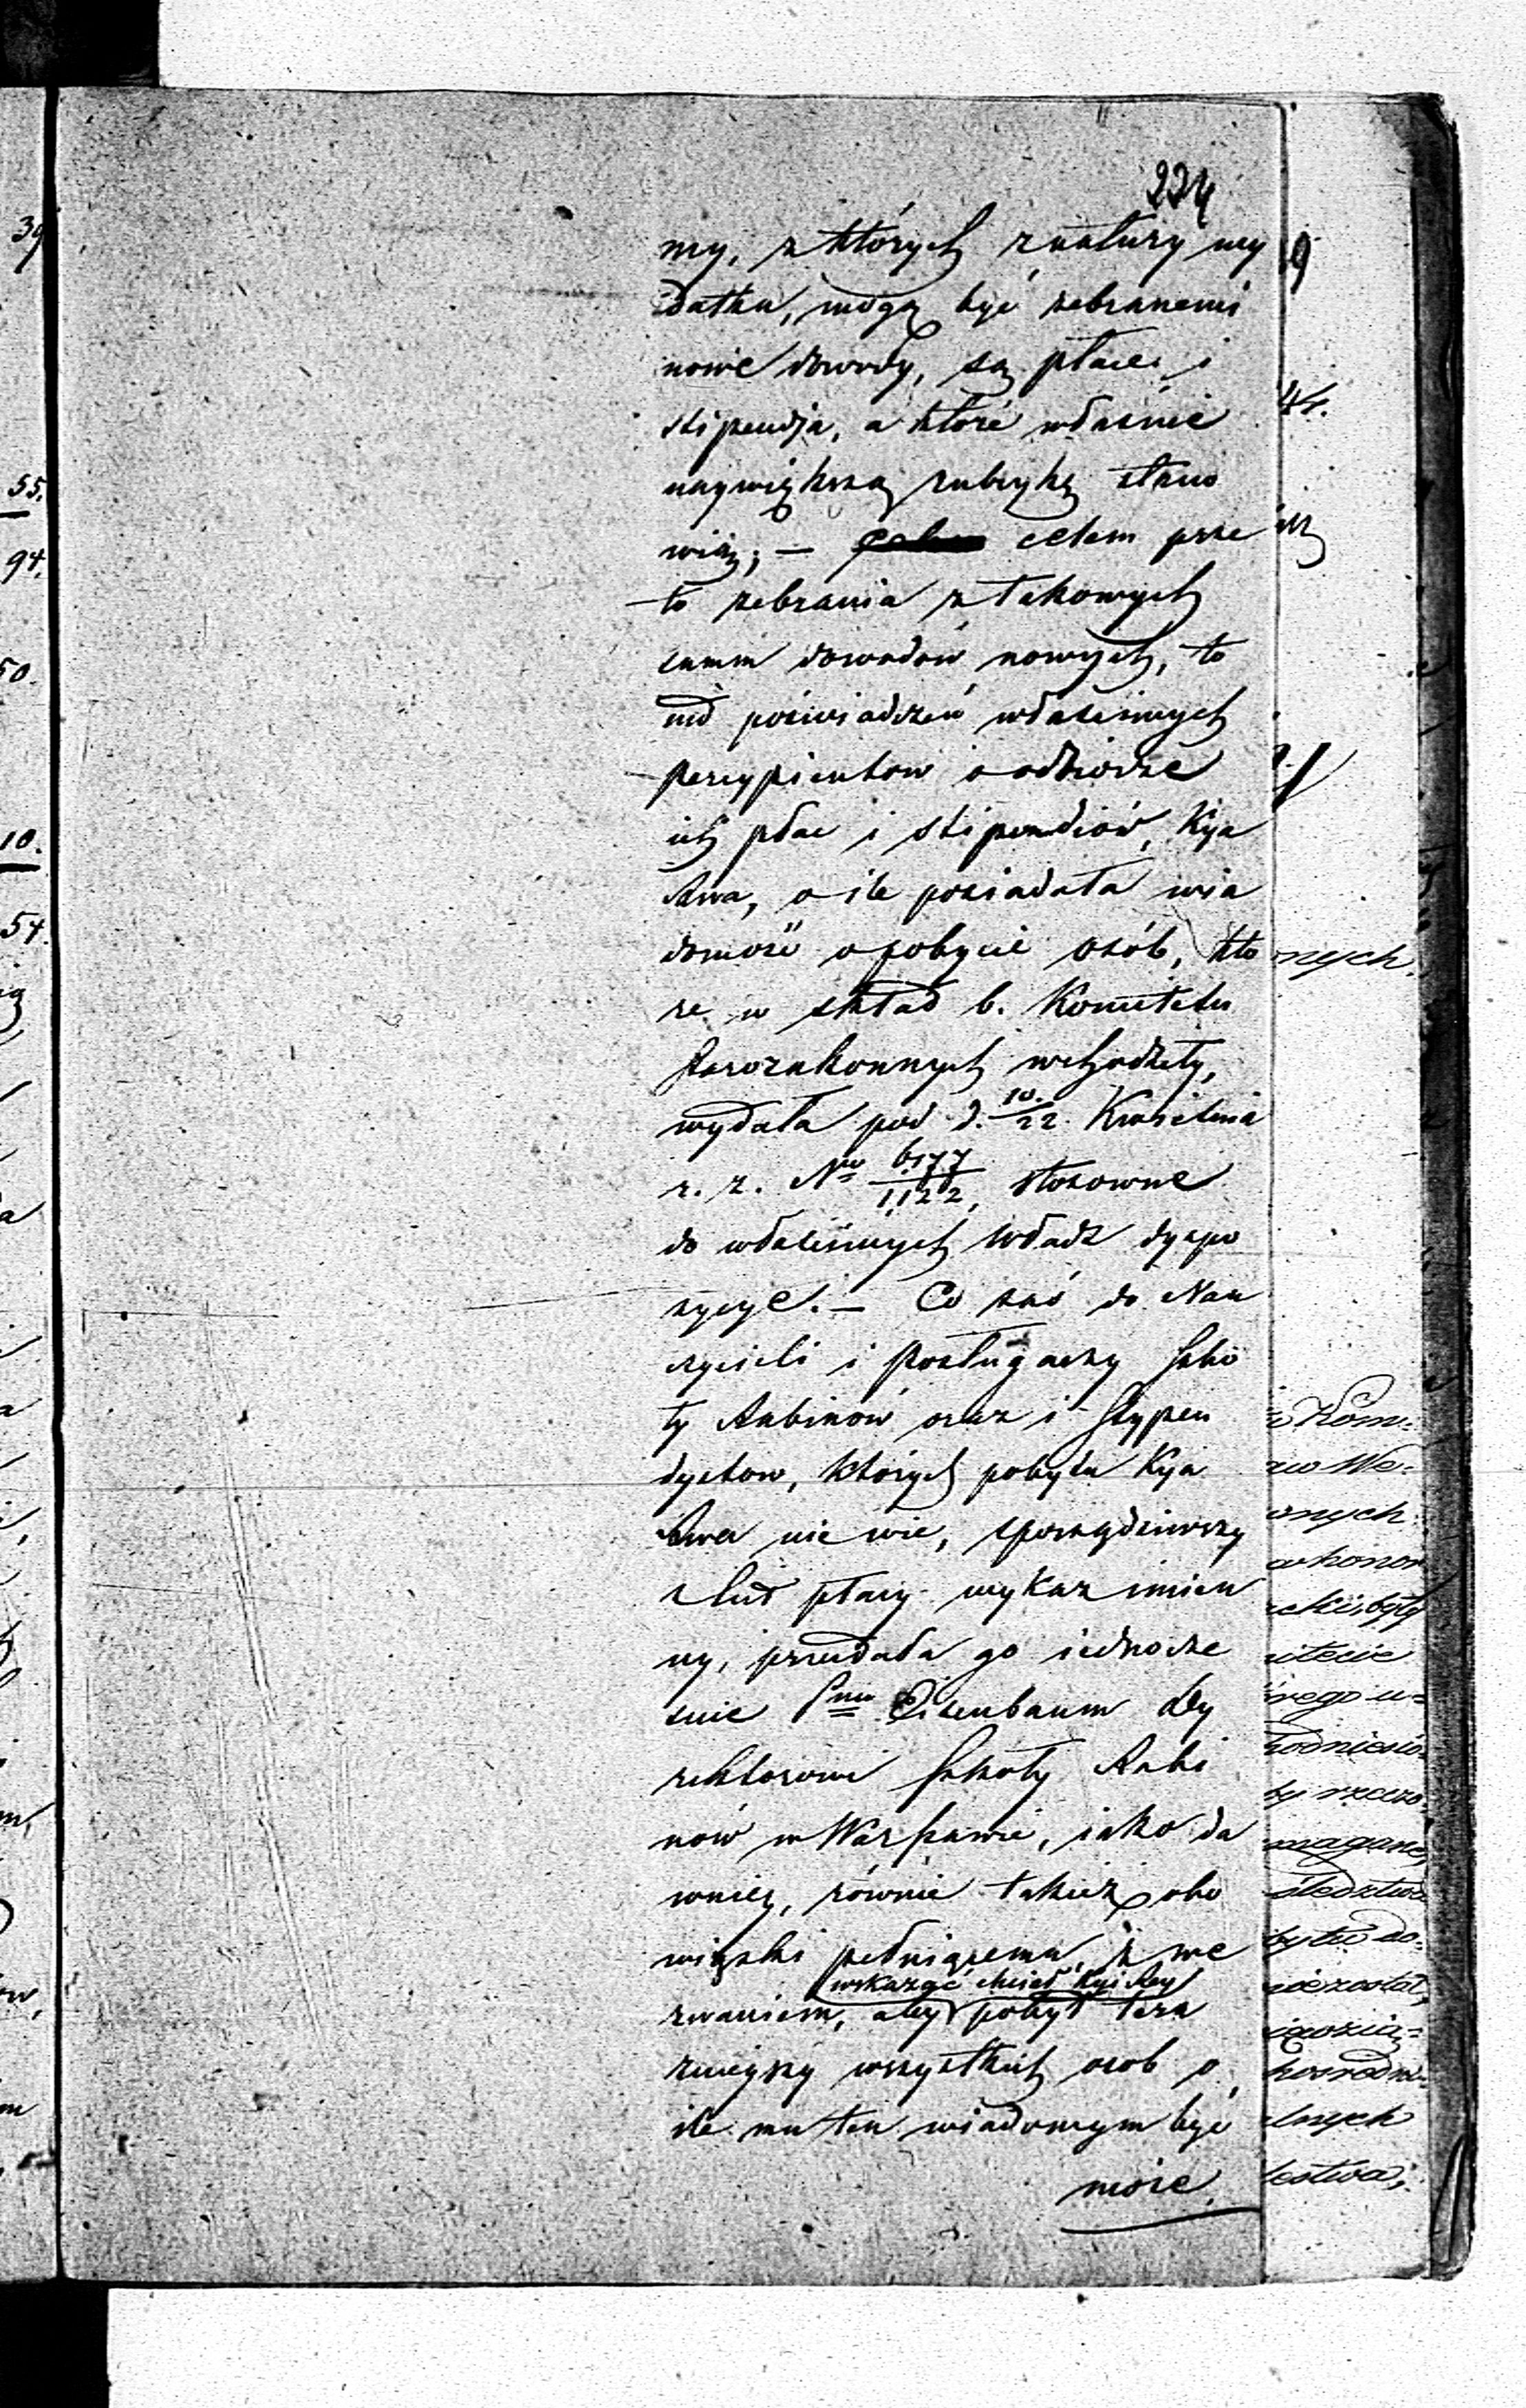 224
my, z których z natury wy
datku, mogą być zebranemi
nowe dowody, są płace i
stipendja, a które właśnie
naywiększą rubrykę stano
wią; — celem prze
to zebrania z takowych
summ dowodów nowych, to
iest poświadczeń właściwych
percypientów o odbiorze
ich płac i stipendiów, Kja
dowa, o ile posiadała wia
domość o pobycie osób, któ
re w skład b. Komitetu
Starozakonnych wchodziły,
wydała pod d. 10/22 Kwietnia
r. z. No 6177/1122, stosowne
do właściwych władz dyspo
zycye. — Co zaś do Nau
czycieli i posługaczy Szko
ły Rabinów oraz i Stypen
dystów, których pobytu Kja
dowa nie wie, sporządziwszy
z list płacy wykaz imien
ny, przesłała go iednocze
śnie Pnu Eisenbaum Dy
rektorowi Szkoły Rabi
nów w Warszawie, iako da
wniey, równie takież obo
wiązki pełniącemu, z we
wskazać chciał Kji
zwaniem, aby pobyt tera
znieyszy wszystkich osób o
ile mu ten wiadomym być
może.
39
55.
94.
50.
10.
54.
44.
nych.
Kom:
onych
były
itecie
rego u=
magane,
śledztwa
został,
lnych